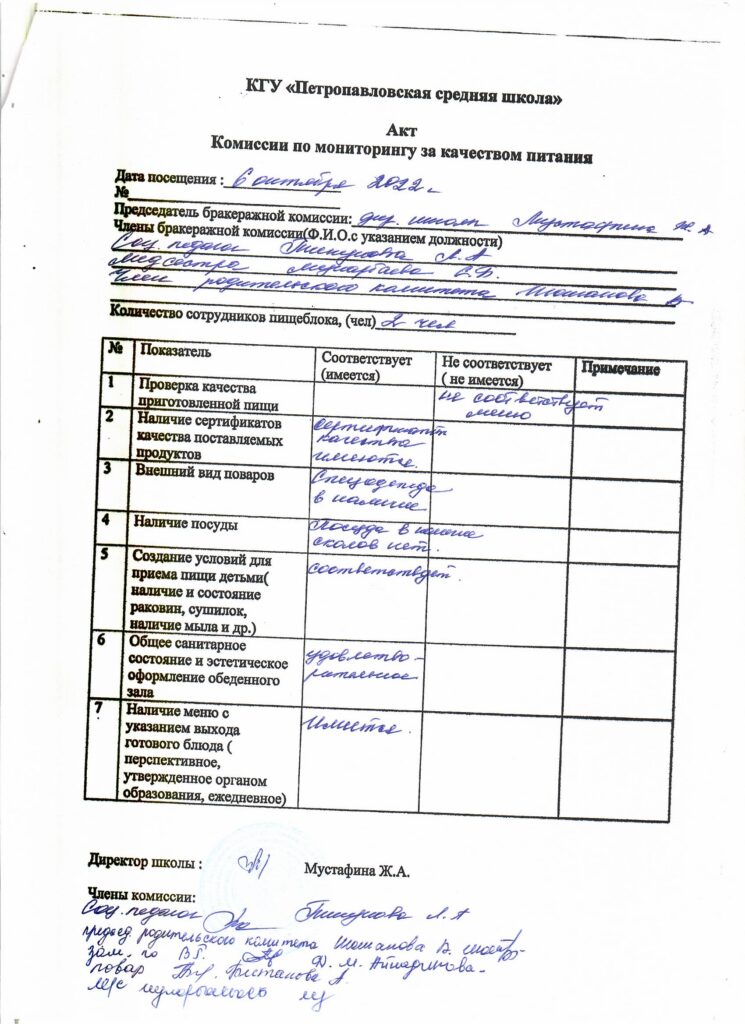 КГУ «Петропавловская средняя школа»
Акт
Комиссии по мониторингу за качеством питания
Дата посещения : 6 октября 2022 г
№
Председатель бракеражной комиссии: дир. школы Мустафина Ж. А
Члены бракеражной комиссии(Ф.И.О.с указанием должности)
Соц. педагог Л. А
Медсестра
Член родительского комитета Шоманова В
Количество сотрудников пищеблока, (чел) 2 чел
№ Показатель Соответствует (имеется) Не соответствует ( не имеется) Примечание
1 Проверка качества
приготовленной пищи
не соответствует
меню
2 Наличие сертификатов
качества поставляемых
продуктов
сертификат
качества
имеются.
3 Внешний вид поваров
Спецодежда
в наличие
4 Наличие посуды
Посуда в
сколов нет.
5 Создание условий для
приема пищи детьми(
наличие и состояние
раковин, сушилок,
наличие мыла и др.)
соответствует.
6 Общее санитарное
состояние и эстетическое
оформление обеденного
зала
удовлетво-
рительное
7 Наличие меню с
указанием выхода
готового блюда (
перспективное,
утвержденное органом
образования, ежедневное)
Имеется.
Директор школы : Мустафина Ж.А.
Члены комиссии:
Соц. педагог Л. А
председ. родительского комитета Шоманова В.
зам. по ВР. Д. М.
повар А.